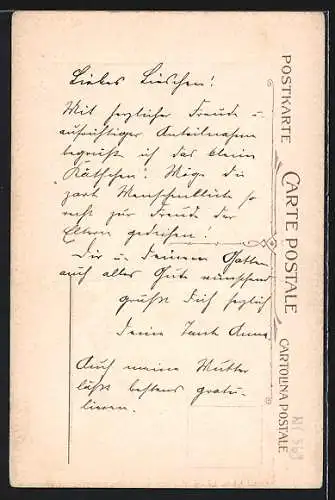 Liebes Lieschen!
Mit herzlicher Freude u.
aufrichtiger Anteilnahme
begrüße ich das kleine
"Käthchen". Möge die
zart Menschenblüte so
recht zur Freude der
Eltern gedeihen!
Dir u. Deinem Gatten
auch alles Gute wünschend
grüßt Dich herzlich
Deine Tante Anna.
Auch meine Mutter
läßt bestens gratu-
lieren.
POSTKARTE
CARTE POSTALE
CARTOLINA POSTALE